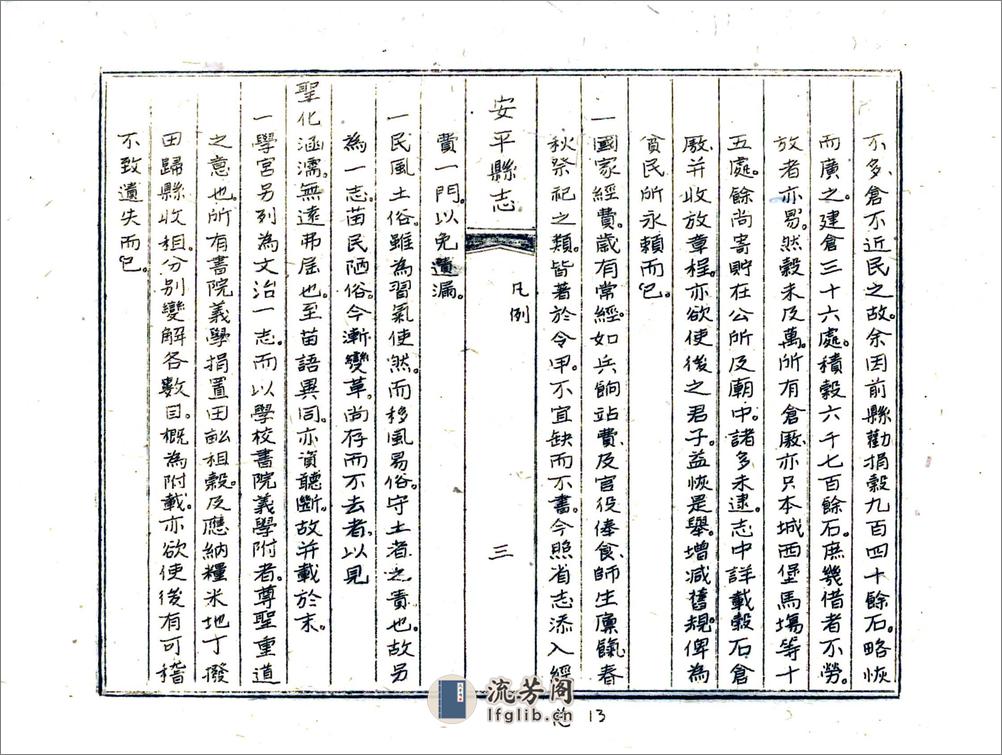 不多、倉不近民之故。余因前縣勸捐穀九百四十餘石。略恢
而廣之。建倉三十六處。積穀六千七百餘石。庶幾借者不勞。
放者亦易。然穀未及萬。所有倉廒。亦只本城西堡馬塲等十
五處。餘尚寄貯在公所及廟中。諸多未逮。志中詳載穀石倉
廒并收放章程。亦欲使後之君子。益恢是舉。增減舊規。俾為
貧民所永賴而已。
一國家經費。歲有常經。如兵餉站費、及官役俸食、師生廩餼、春
秋祭祀之類。皆著於令甲。不宜缺而不書。今照省志添入經
安平縣志
凡例
三
費一門。以免遺漏。
一民風土俗。雖為習氣使然。而移風易俗。守土者之責也。故另
為一志。苗民陋俗。今漸變革。尚存而不去者。以見
聖化涵濡。無遠弗屆也。至苗語異同。亦資聽斷。故并載於末。
一學宮另列為文治一志。而以學校書院義學附者。尊聖重道
之意也。所有書院義學捐置田畝租穀。及應納糧米地丁撥
田歸縣收租。分別變解各數目。概為附載。亦欲使後有可稽
不致遺失而已。
流芳阁
lfglib.cn
13